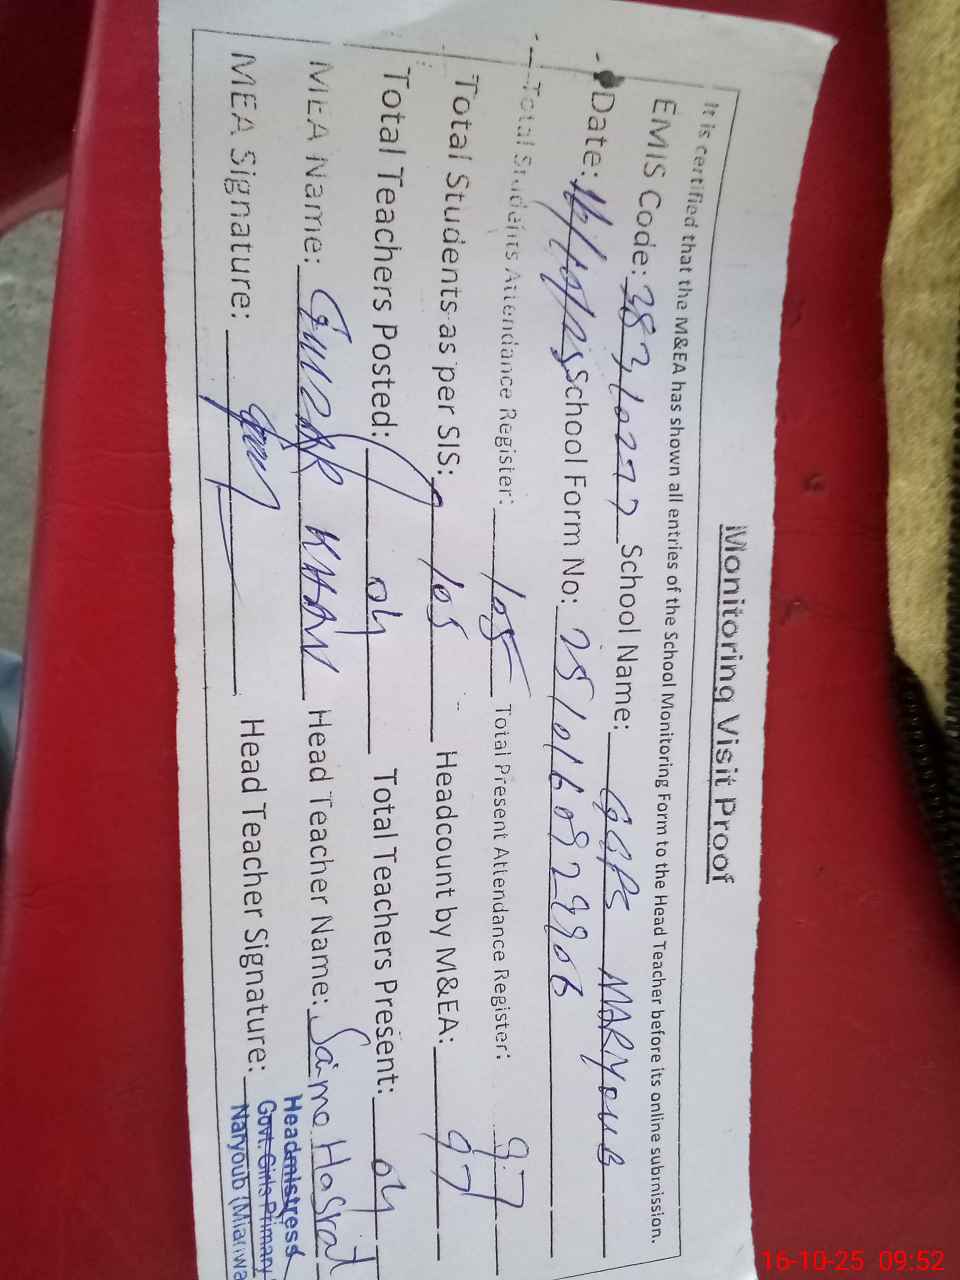 Monitoring Visit Proof
It is certified that the M&EA has shown all entries of the School Monitoring Form to the Head Teacher before its online submission.
EMIS Code: 38310277 School Name: GGPS MARYOUB
Date: 16/10/25 School Form No: 251016082990B
Total Students Attendance Register: 105 Total Present Attendance Register: 97
Total Students as per SIS: 105 Headcount by M&EA: 97
Total Teachers Posted: 04 Total Teachers Present: 04
MEA Name: KHAN Head Teacher Name: Saima Hasrat
MEA Signature: Head Teacher Signature:
Headmistress
Govt. Girls Primary
Naryoub (Mianwa
16-10-25 09:52